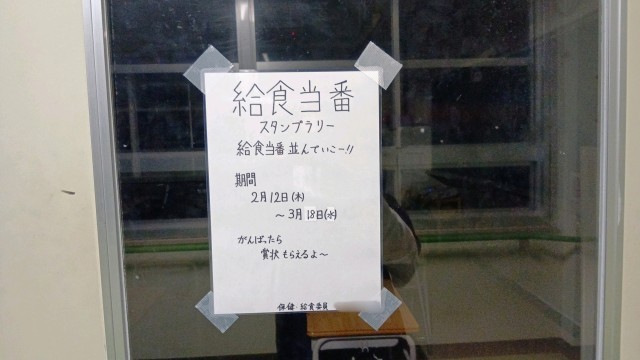 給食当番
スタンプラリー
給食当番並んでいこー!!
期間
2月12日(木)
～3月18日(水)
がんばったら
賞状もらえるよ～
保健・給食委員